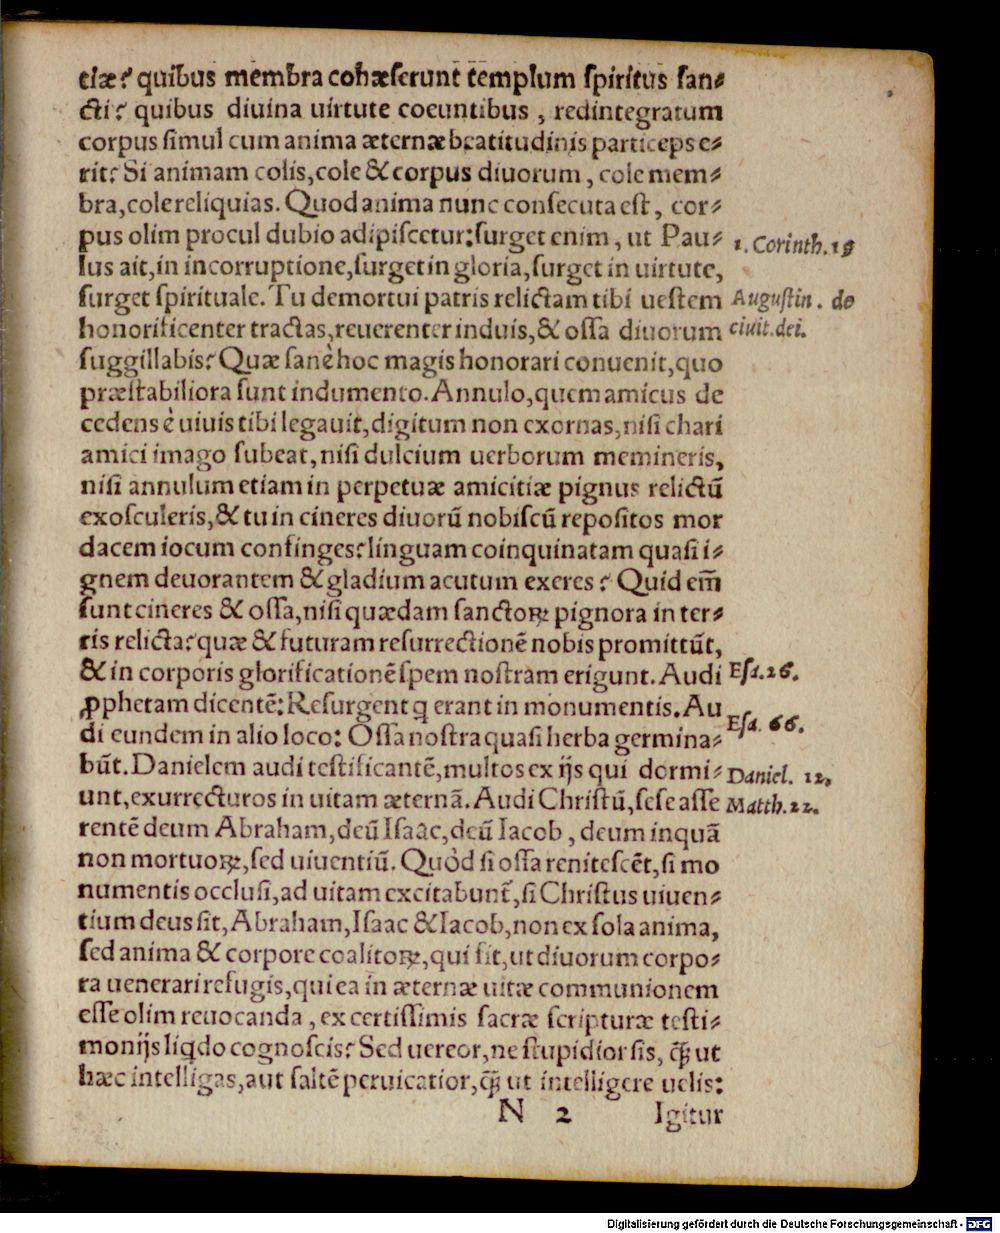 ciæ? quibus membra cohæserunt templum spiritus san⸗
cti? quibus diuina uirtute coeuntibus, redintegratum
corpus simul cum anima æternæ beatitudinis particeps e⸗
rit? Si animam colis, cole & corpus diuorum, cole mem⸗
bra, cole reliquias. Quod anima nunc consecuta est, cor⸗
pus olim procul dubio adipiscetur: surget enim, ut Pau⸗
1. Corinth. 15
lus ait, in incorruptione, surget in gloria, surget in uirtute,
surget spirituale. Tu demortui patris relictam tibi uestem
Augustin. de
honorificenter tractas, reuerenter induis, & ossa diuorum
ciuit. dei.
suggillabis? Quæ sanè hoc magis honorari conuenit, quo
præstabiliora sunt indumento. Annulo, quem amicus de
cedens è uiuis tibi legauit, digitum non exornas, nisi chari
amici imago subeat, nisi dulcium uerborum memineris,
nisi annulum etiam in perpetuæ amicitiæ pignus relictũ
exosculeris, & tu in cineres diuorũ nobiscũ repositos mor
dacem iocum confinges? linguam coinquinatam quasi i⸗
gnem deuorantem & gladium acutum exeres? Quid em̃
sunt cineres & ossa, nisi quædam sanctoꝝ pignora in ter⸗
ris relicta? quæ & futuram resurrectionẽ nobis promittũt,
& in corporis glorificationẽ spem nostram erigunt. Audi
Esa. 26.
ꝓphetam dicentẽ: Resurgent q̃ erant in monumentis. Au
Esa. 66.
di eundem in alio loco: Ossa nostra quasi herba germina⸗
bũt. Danielem audi testificantẽ, multos ex ijs qui dormi⸗
Daniel. 12,
unt, exurrecturos in uitam æternã. Audi Christũ, sese asse
Matth. 22.
rentẽ deum Abraham, deũ Isaac, deũ Iacob, deum inquã
non mortuoꝝ, sed uiuentiũ. Quòd si ossa renitescẽt, si mo
numentis occlusi, ad uitam excitabunt̃, si Christus uiuen⸗
tium deus sit, Abraham, Isaac & Iacob, non ex sola anima,
sed anima & corpore coalitoꝝ, qui fit, ut diuorum corpo⸗
ra uenerari refugis, qui ea in æternæ uitæ communionem
esse olim reuocanda, ex certissimis sacræ scripturæ testi⸗
monijs liq̃do cognoscis? Sed uereor, ne stupidior sis, q̃ꝫ ut
hæc intelligas, aut saltẽ peruicatior, q̃ꝫ ut intelligere uelis:
N 2 Igitur
Digitalisierung gefördert durch die Deutsche Forschungsgemeinschaft - DFG